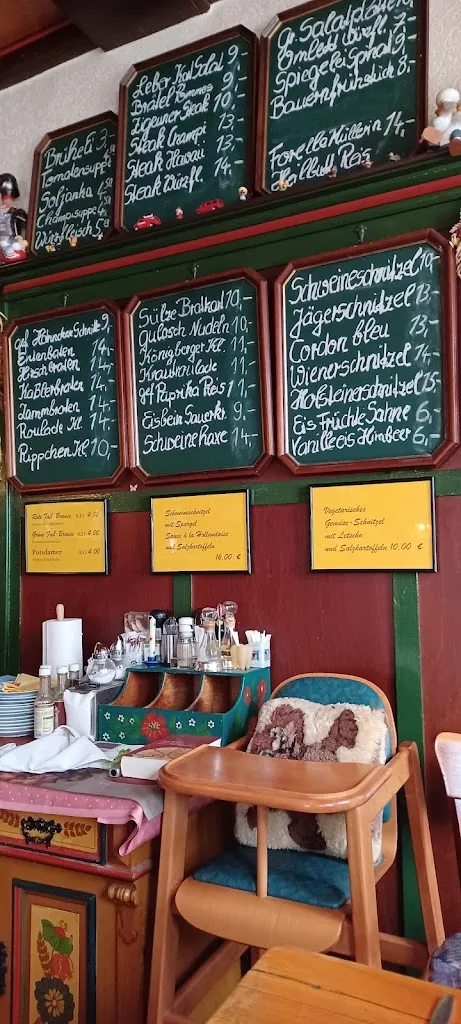 Brühei 3,-
Tomatensuppe 4,50
Soljanka 4,50
Champ.suppe
Würzfleisch 5,50
Leber Kart.Salat 9,-
Brätel Pommes 9,-
Zigeuner Steak 10,-
Steak Champi 13,-
Steak Hawai 13,-
Steak Würzfl. 14,-
Gr. Salatplatte
Omlett Würzfl. 7,-
Spiegelei Spinat 9,-
Bauernfrühstück 8,-
Forelle Müllerin 14,-
Heilbutt Reis
gef Hähnchen Schnitz 9,-
Entenbraten 14,-
Hirschbraten 14,-
Kaßlerbraten 14,-
Lammbraten 14,-
Roulade Kl. 14,-
Rippchen Kl 10,-
Sülze Bratkart 10,-
Gulasch Nudeln 11,-
Königberger Kl. 11,-
Krautroulade 11,-
gef Paprika Reis 11,-
Eisbein Sauerkr. 9,-
Schweinehaxe 14,-
Schweineschnitzel 10,-
Jägerschnitzel 13,-
Cordon bleu 13,-
Wienerschnitzel 14,-
Holsteinerschnitzel 15,-
Eis Früchte Sahne 6,-
Vanilleeis Himbeer 6,-
Rote Faß-Brause 0,5 l 4,00
Grüne Faß-Brause 0,5 l 4,00
Potsdamer 0,5 l 4,00
Schweineschnitzel
mit Spargel
Sauce à la Hollandaise
und Salzkartoffeln
16,00 €
Vegetarisches
Gemüse-Schnitzel
mit Letscho
und Salzkartoffeln 10,00 €